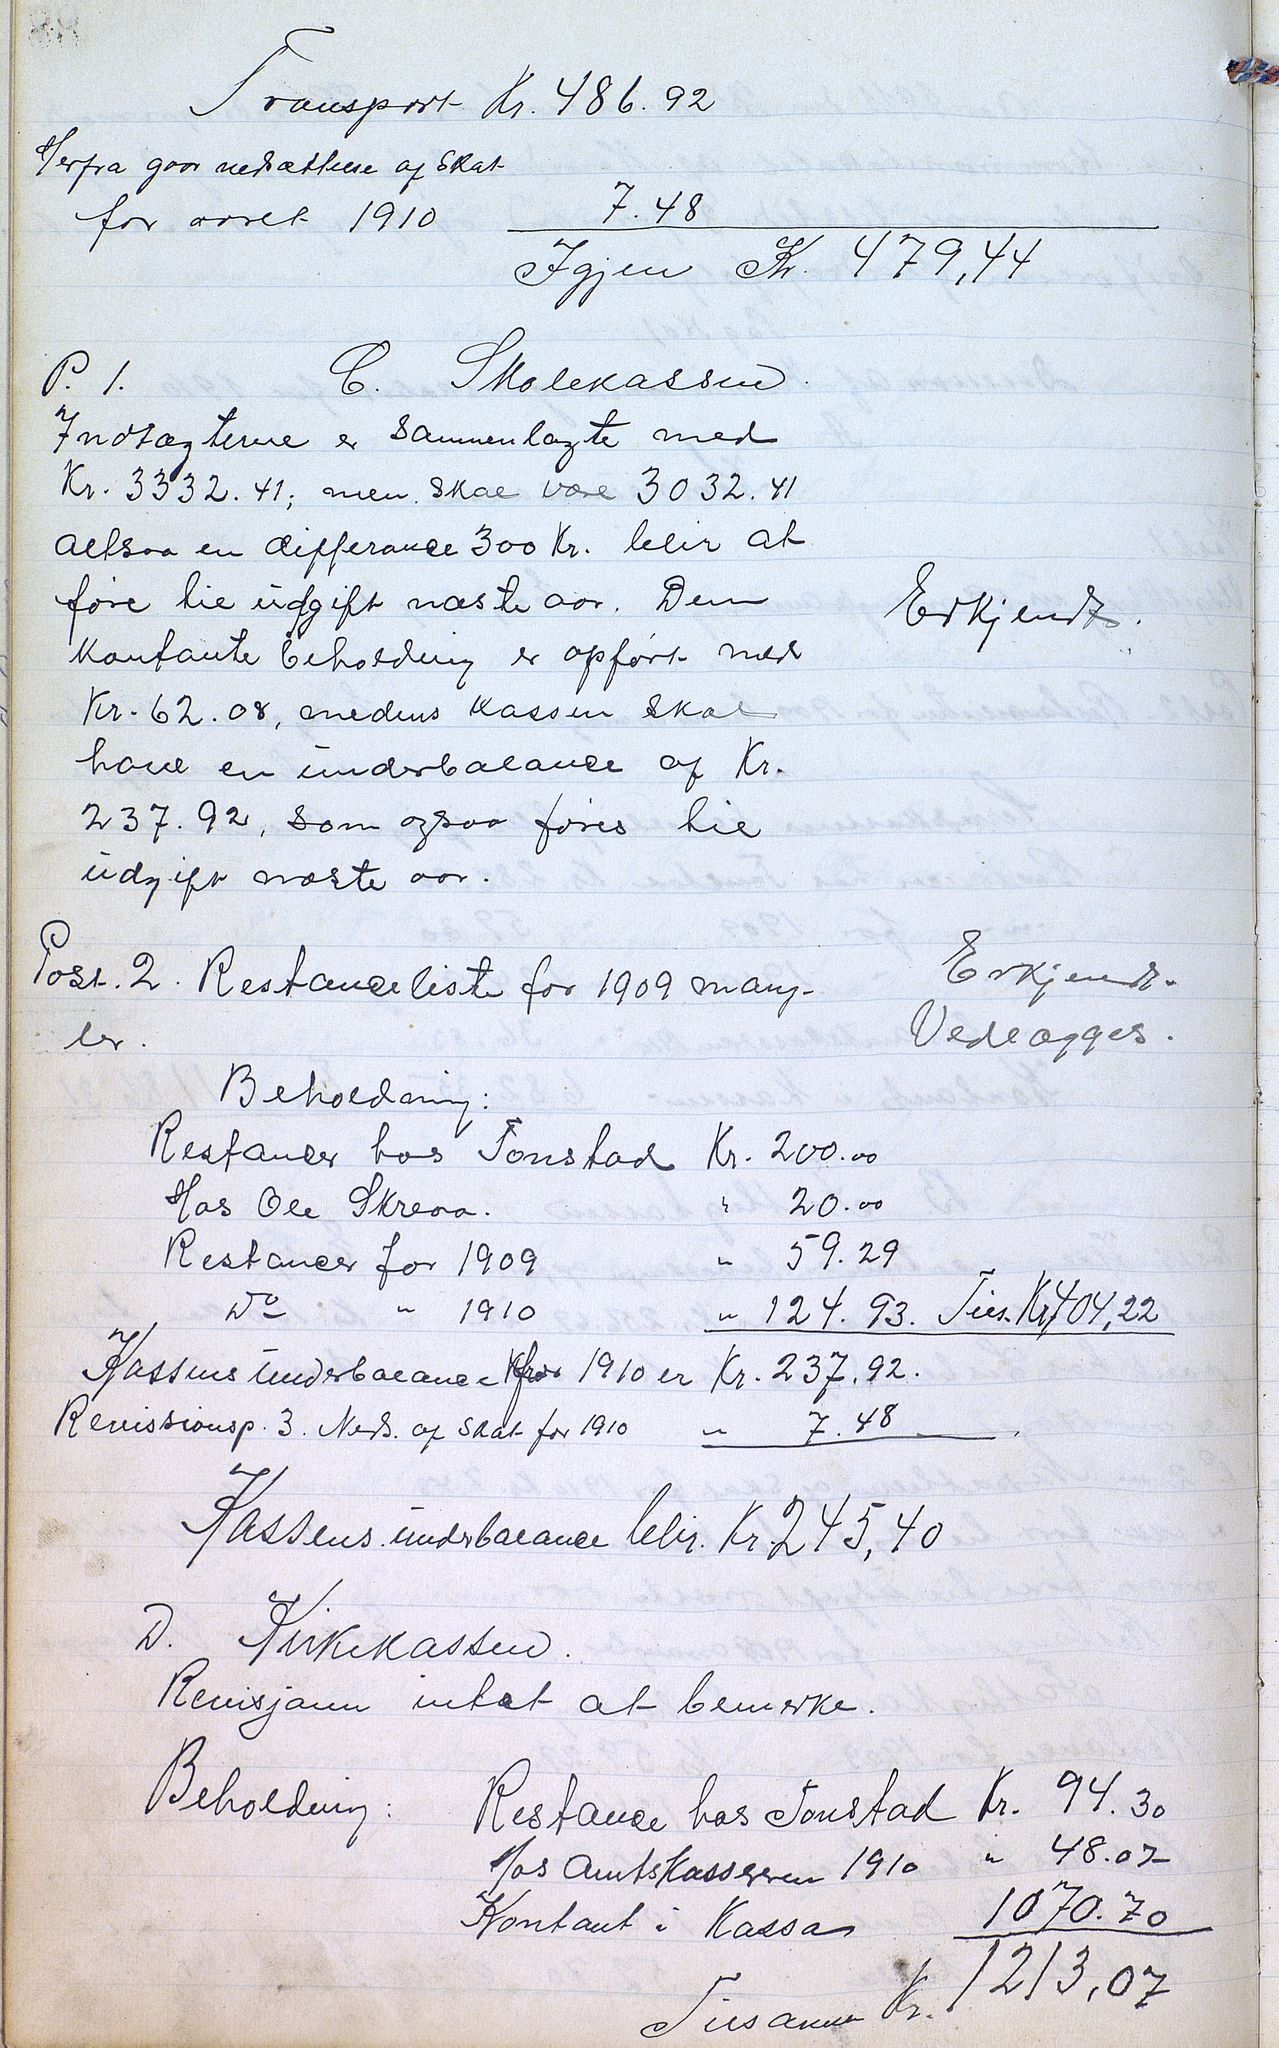 Transport Kr. 486.92
Herfra gaar nedsættelse af Skat
for aaret 1910 7.48
Igjen Kr. 479,44
P. 1. C. Skolekassen.
Indtægterne er sammenlagte med
Kr. 3332.41; men skal være 3032.41
altsaa en differance 300 Kr. blir at
føre til udgift næste aar. Den Erkjendt.
kontante beholdning er opført med
Kr. 62.08, medens kassen skal
have en underbalance af Kr.
237.92, som ogsaa føres til
udgift næste aar.
Post. 2. Restanceliste for 1909 mang- Erkjendt.
ler. Vedlægges.
Beholdning:
Restancer hos Tonstad Kr. 200.00
Hos Ole Skreaa. " 20.00
Restancer for 1909 " 59.29
Do " 1910 " 124.93. Tils. Kr 404,22
Kassens underbalance for 1910 er Kr. 237.92.
Revissionsp. 3. Neds. af Skat for 1910 " 7.48
Kassens underbalance blir. Kr. 245,40
D. Kirkekassen.
Revisjonen intet at bemerke.
Beholdning: Restance hos Tonstad Kr. 94.30
Hos Amtskasseren 1910 " 48.07
Kontant i Kassa 1070.70
Tilsamen Kr. 1213,07